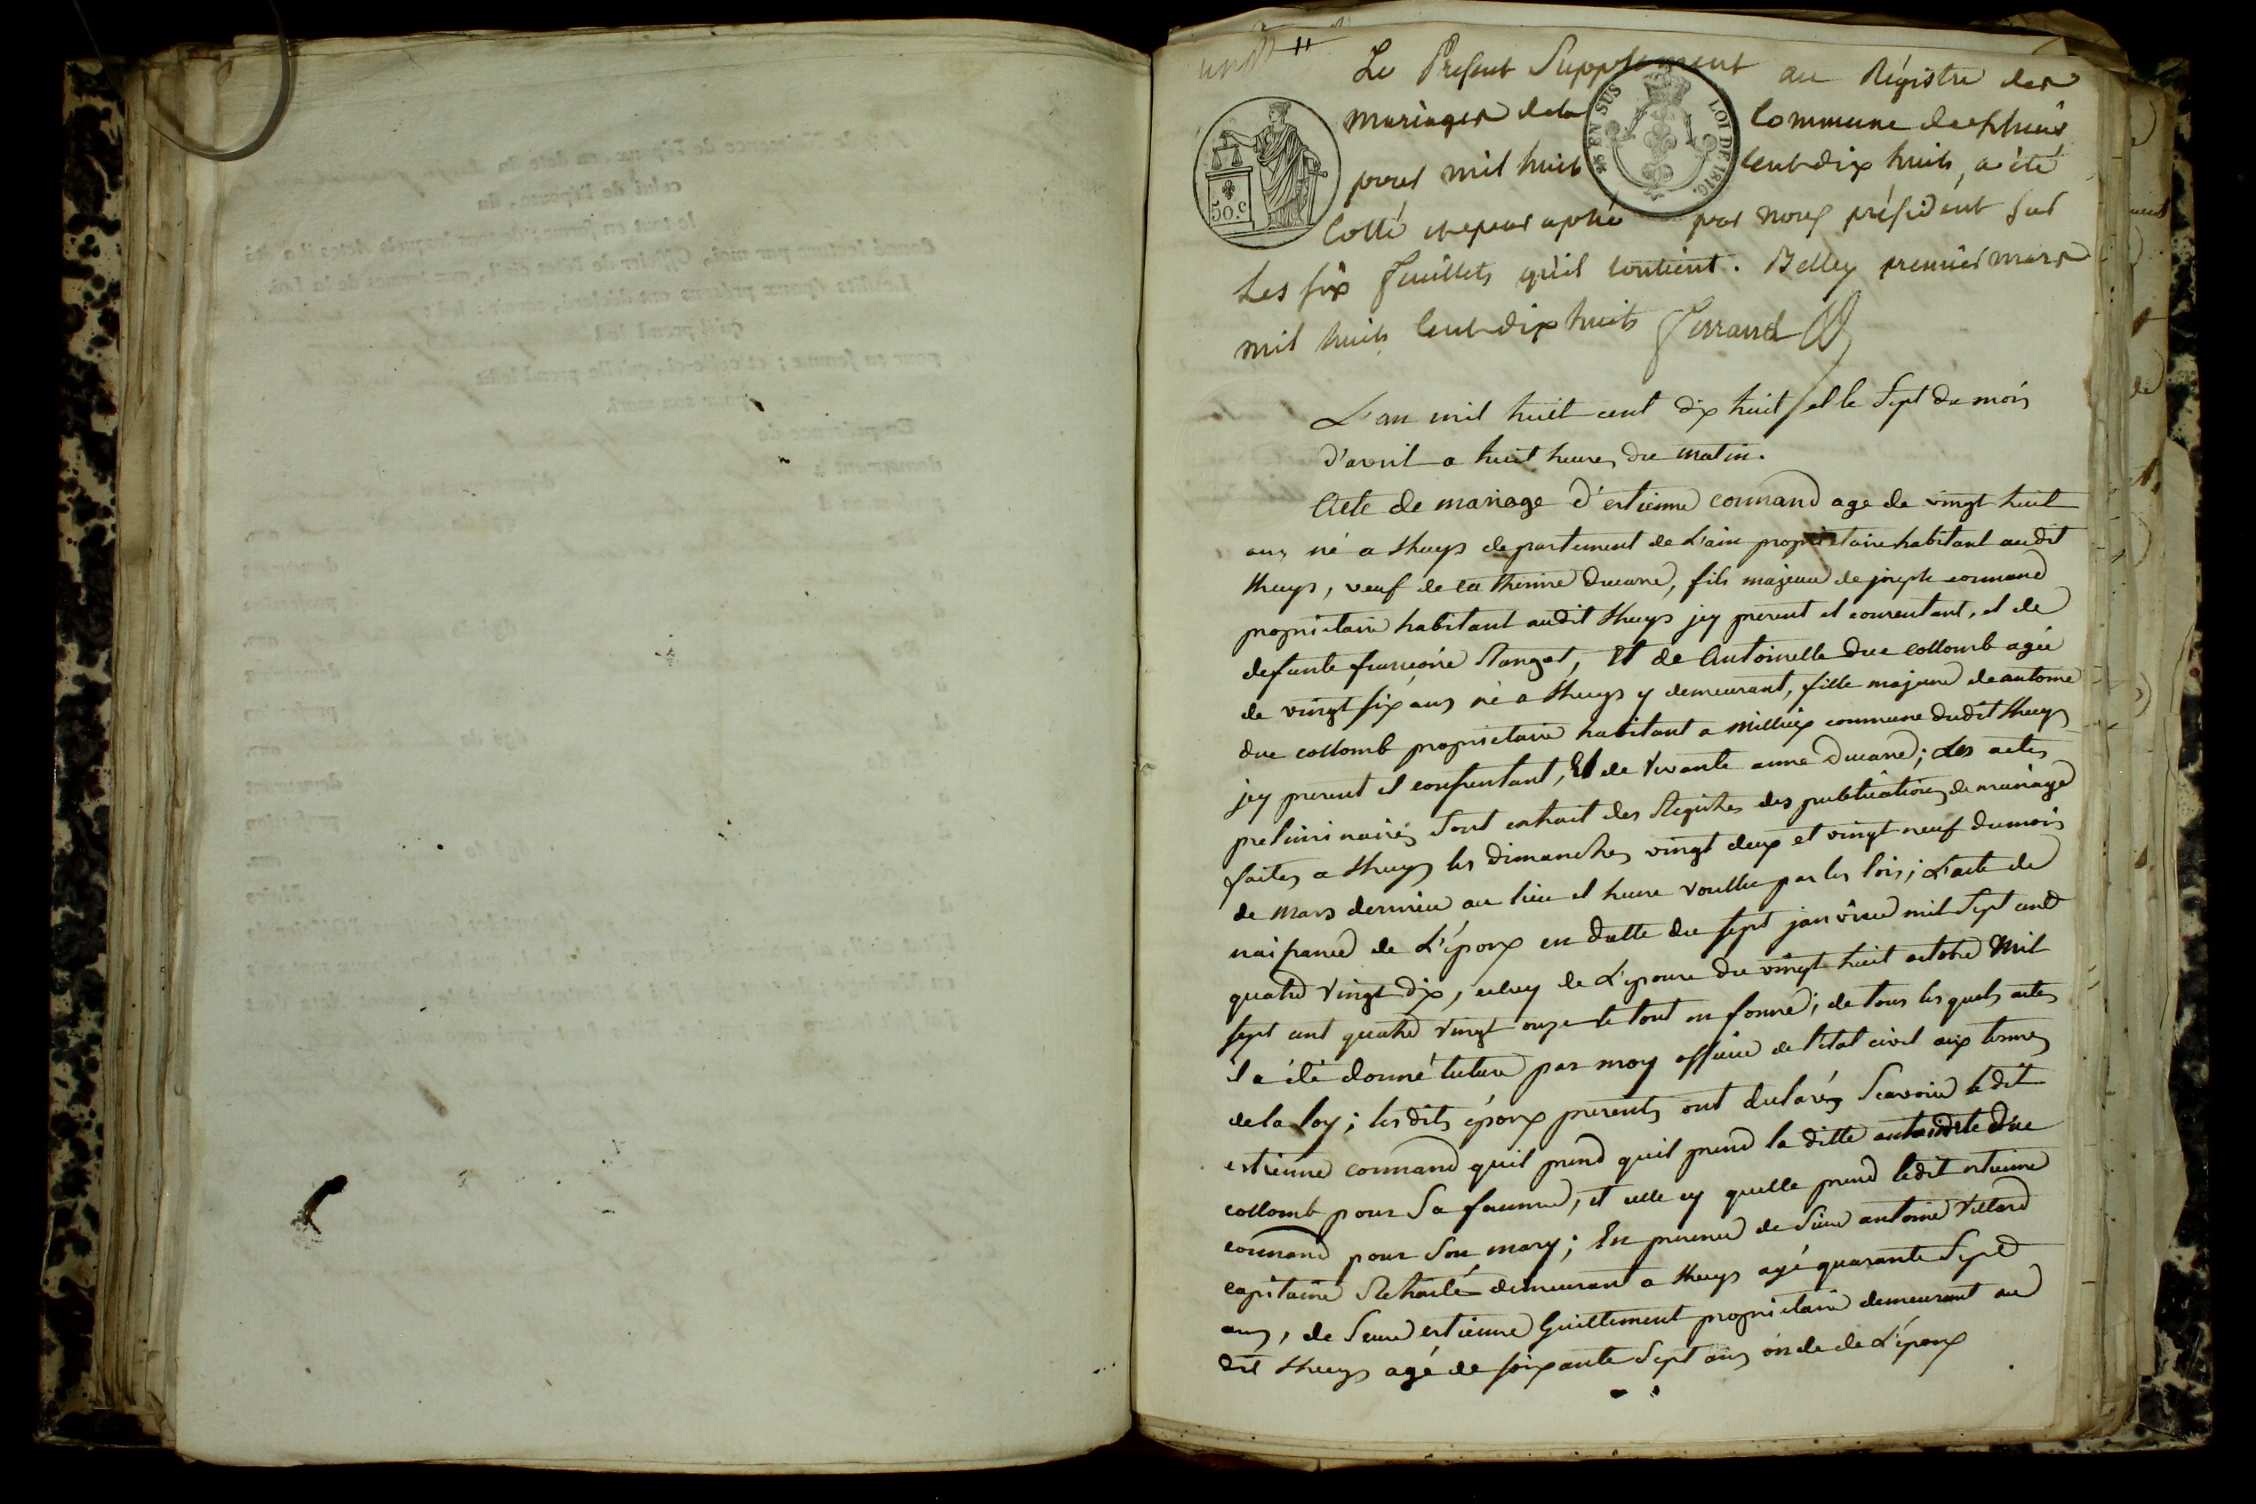 Le Present Supplement au Régistre des
mariages de la Commune de
pour mil huit Cent dix huit, a été
Cotté et par aphé par nous président Sur
Les six feuillets qu'il contient. Belley premier mars
mil huit Cent dix huit Ferrand
EN SUS LOI DE 1816.
50.c
L'an mil huit cent dix huit et le Sept du mois
d'avril a huit heures du matin.
Acte de mariage d'estienne counand age de vingt huit
ans né a thuys departement de L'ain proprietaire habitant audit
thuys, veuf de catherine Ducarre, fils majeur de joseph counand
proprietaire habitant audit thuys jcy present et consentant, et de
defunte francoise, Et de Antoinette duc collomb agée
de vingt six ans né a thuys y demeurant, fille majeure de antoine
duc collomb proprietaire habitant a millieux commune dudit thuys
jcy present et consentant, Et de Vivante anne Ducarre; Les actes
preliminaires Sont extrait des Registres des publications de mariage
faites a thuys les dimanches vingt deux et vingt neuf du mois
de mars dernier au lieu et heure voullue par les lois; L'acte de
naissance de L'époux en datte du sept janvier mil Sept cend
quatre Vingt Dix, celuy de L'epouse du vingt huit octobre Mil
sept cent quatre Vingt onze le tout en forme; de tous les quels actes
il a été donné lecture par moy officier de l'état civil aux termes
de la Loy; les dits époux presents ont declarés Scavoir le dit
estienne counand quil prend quil prend la ditte antoinette duc
collomb pour Sa famme, et celle cy quelle prend ledit estienne
counand pour Son mary; En presence de Sieur antoine Villard
capitaine Retraité demeurant a thuys agé quarante Sept
ans, de Sieur estienne Guillement proprietaire demeurant au
dit thuys agé de soixante Sept ans oncle de L'époux